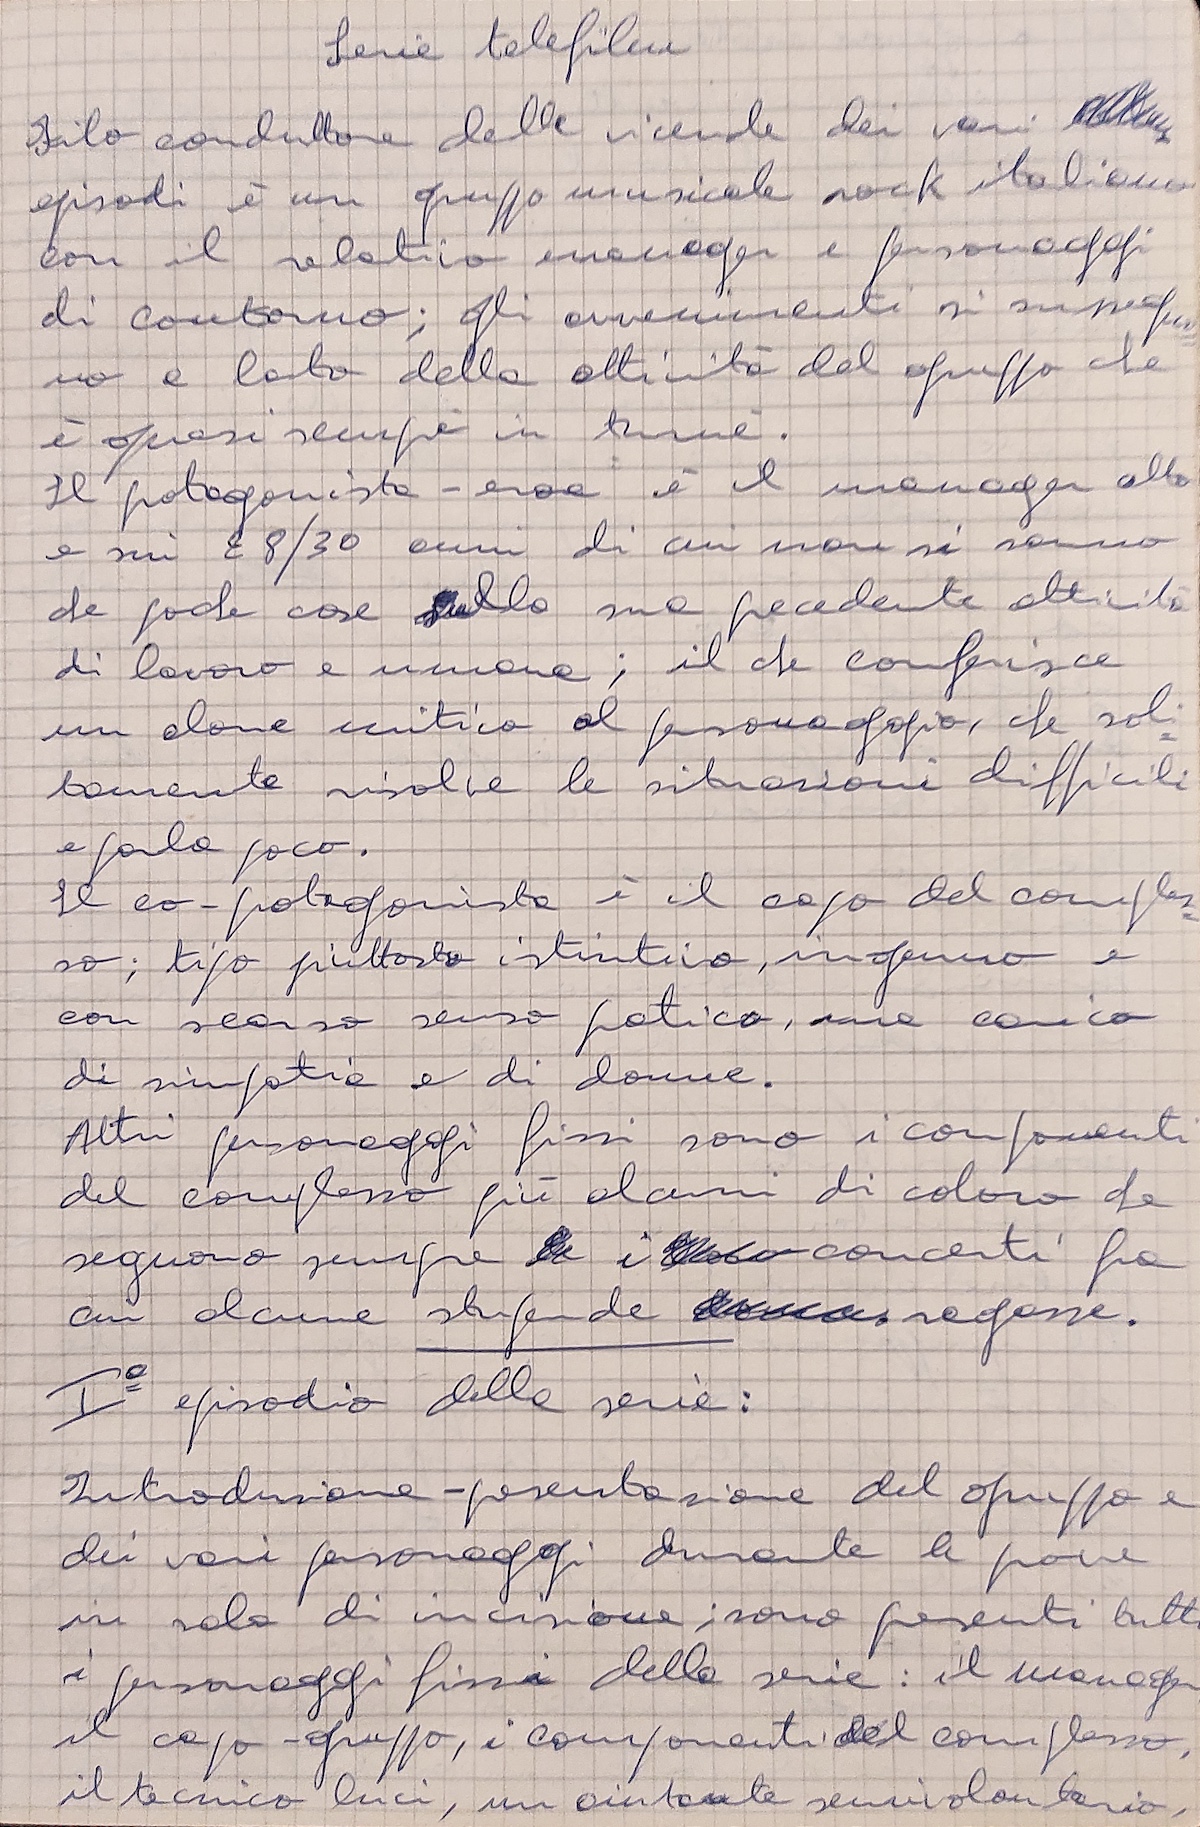 Serie telefilm
Filo conduttore delle vicende dei vari
episodi è un gruppo musicale rock italiano
con il relativo manager e personaggi
di contorno; gli avvenimenti si sussegui=
no a lato della attività del gruppo che
è quasi sempre in turnè.
Il protagonista-eroe è il manager alto
e sui 28/30 anni di cui non si sanno
che poche cose sulla sua precedente attività
di lavoro e umana; il che conferisce
un alone mitico al personaggio, che soli=
tamente risolve le situazioni difficili
e parla poco.
Il co-protagonista è il capo del comples=
so; tipo piuttosto istintivo, ingenuo e
con scarso senso pratico, ma carico
di simpatia e di donne.
Altri personaggi fissi sono i componenti
del complesso più alcuni di coloro che
seguono sempre i concerti fra
cui alcune stupende ragazze.
Iº episodio della serie:
Introduzione-presentazione del gruppo e
dei vari personaggi durante le prove
in sala di incisione; sono presenti tutti
i personaggi fissi della serie: il manager
il capo-gruppo, i componenti del complesso,
il tecnico luci, un aiutante semivolontario,